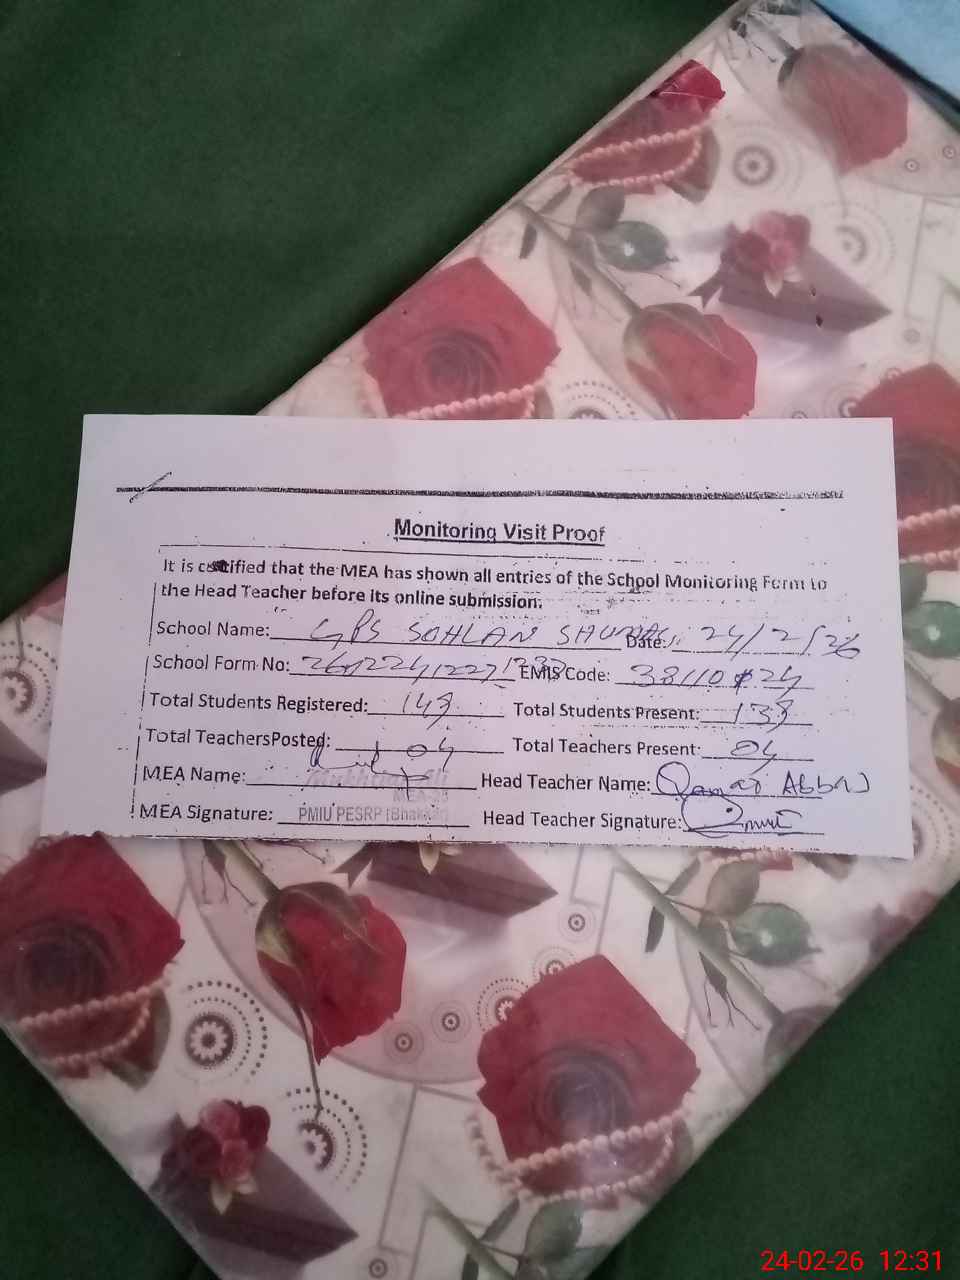 Monitoring Visit Proof
It is certified that the MEA has shown all entries of the School Monitoring Form to
the Head Teacher before its online submission.
School Name: GPS SOHLAN Date: 24/2/26
School Form No: EMIS Code:
Total Students Registered: Total Students Present:
Total TeachersPosted: 04 Total Teachers Present: 04
MEA Name: Head Teacher Name: Qamar Abbas
MEA Signature: PMIU PESRP (Bhakkar) Head Teacher Signature:
24-02-26 12:31